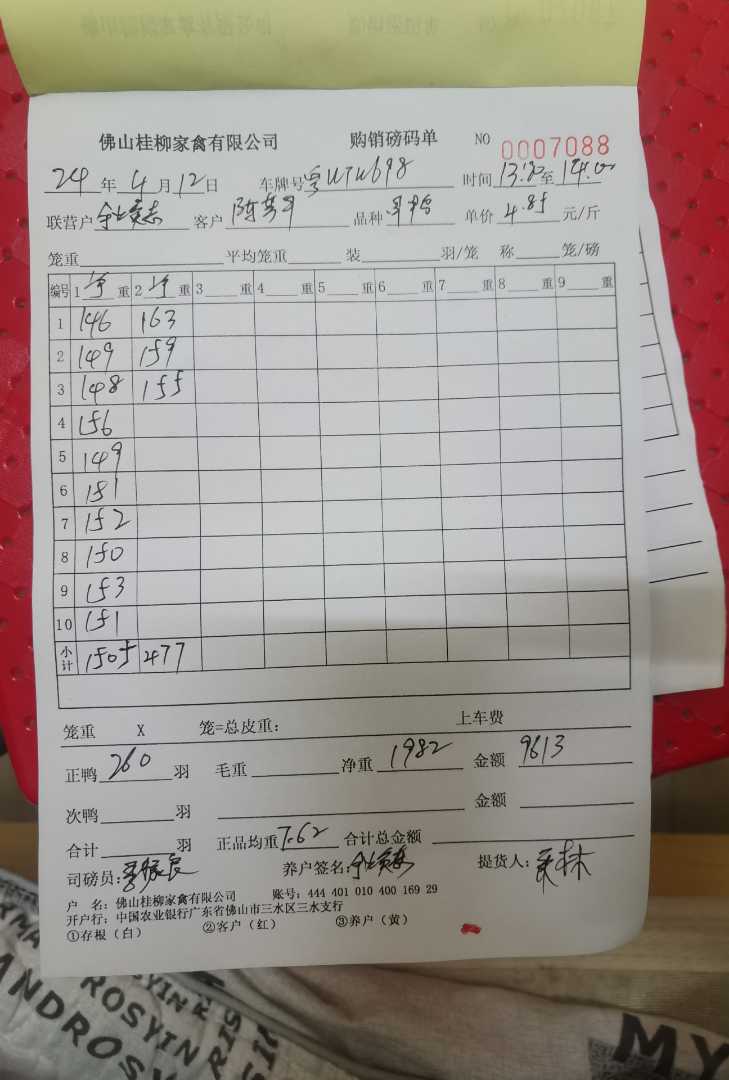 佛山桂柳家禽有限公司 购销磅码单 NO 0007088
24年4月12日 车牌号 时间13:20至14:00
联营户 客户 陈 品种 单价4.85元/斤
笼重 平均笼重 装 羽/笼 称 笼/磅
编号 1净重 2净重 3 重 4 重 5 重 6 重 7 重 8 重 9 重
1 146 163
2 149 159
3 148 155
4 156
5 149
6 151
7 152
8 150
9 153
10 151
小计 1505 477
笼重 X 笼=总皮重: 上车费
正鸭260羽 毛重 净重1982 金额9613
次鸭 羽 金额
合计 羽 正品均重7.62 合计总金额
司磅员: 养户签名: 提货人:
户 名: 佛山桂柳家禽有限公司 账号: 444 401 010 400 169 29
开户行: 中国农业银行广东省佛山市三水区三水支行
①存根(白) ②客户(红) ③养户(黄)
ROSYIN
ANDROS
MY